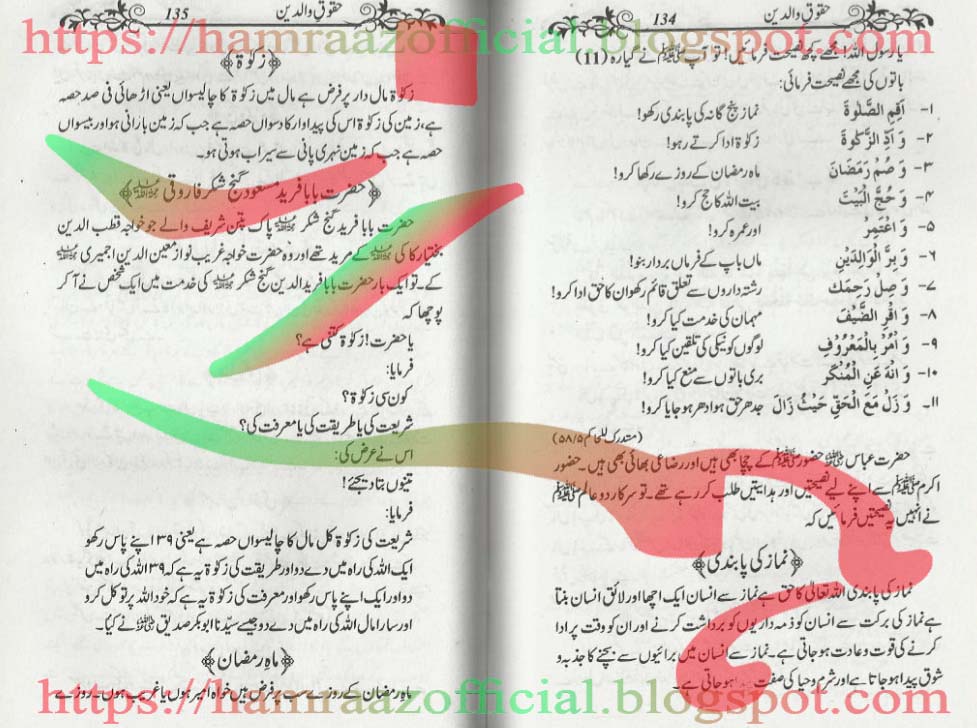 https://hamraazofficial.blogspot.com
134 حقوق والدین
یا رسول اللہ! مجھے کچھ نصیحت فرمائیں! تو آپ ﷺ نے گیارہ (11)
باتوں کی مجھے نصیحت فرمائی:
۱۔ اَقِمِ الصَّلٰوةَ نماز پنج گانہ کی پابندی رکھو!
۲۔ وَ اَدِّ الزَّكٰوةَ زکوٰۃ ادا کرتے رہو!
۳۔ وَ صُمْ رَمَضَانَ ماہ رمضان کے روزے رکھا کرو!
۴۔ وَ حُجَّ الْبَيْتَ بیت اللہ کا حج کرو!
۵۔ وَ اعْتَمِرْ اور عمرہ کرو!
۶۔ وَ بِرَّ الْوَالِدَيْنِ ماں باپ کے فرماں بردار بنو!
۷۔ وَ صِلْ رَحِمَكَ رشتہ داروں سے تعلق قائم رکھو ان کا حق ادا کرو!
۸۔ وَ اقْرِ الضَّيْفَ مہمان کی خدمت کیا کرو!
۹۔ وَ اْمُرْ بِالْمَعْرُوْفِ لوگوں کو نیکی کی تلقین کیا کرو!
۱۰۔ وَ انْهَ عَنِ الْمُنْكَرِ بری باتوں سے منع کیا کرو!
۱۱۔ وَ زَلْ مَعَ الْحَقِّ حَيْثُ زَالَ جدھر حق ہو ادھر ہو جایا کرو!
(مستدرک للحاکم ۵/۵۸)
حضرت عباس ؓ حضور ﷺ کے چچا بھی ہیں اور رضاعی بھائی بھی ہیں۔ حضور
اکرم ﷺ سے اپنے لیے نصیحتیں اور ہدایتیں طلب کر رہے تھے۔ تو سرکار دو عالم ﷺ
نے انہیں یہ نصیحتیں فرمائیں کہ
﴿نماز کی پابندی﴾
نماز کی پابندی اللہ تعالیٰ کا حق ہے نماز سے انسان ایک اچھا اور لائق انسان بنتا
ہے نماز کی برکت سے انسان کو ذمہ داریوں کو برداشت کرنے اور ان کو وقت پر ادا
کرنے کی قوت و عادت ہو جاتی ہے۔ نماز سے انسان میں برائیوں سے بچنے کا جذبہ و
شوق پیدا ہو جاتا ہے اور شرم و حیا کی صفت پیدا ہو جاتی ہے۔
135 حقوق والدین
﴿زکوٰۃ﴾
زکوٰۃ مال دار پر فرض ہے مال میں زکوٰۃ کا چالیسواں یعنی اڑھائی فی صد حصہ
ہے، زمین کی زکوٰۃ اس کی پیداوار کا دسواں حصہ ہے جب کہ زمین بارانی ہو اور بیسواں
حصہ ہے جب کہ زمین نہری پانی سے سیراب ہوتی ہو۔
﴿حضرت بابا فرید مسعود گنج شکر فاروقی ؒ﴾
حضرت بابا فرید گنج شکر ؒ پاک پتن شریف والے جو خواجہ قطب الدین
بختیار کاکی ؒ کے مرید تھے اور وہ حضرت خواجہ غریب نواز معین الدین اجمیری ؒ
کے۔ تو ایک بار حضرت بابا فرید الدین گنج شکر ؒ کی خدمت میں ایک شخص نے آ کر
پوچھا کہ
یا حضرت! زکوٰۃ کتنی ہے؟
فرمایا:
کون سی زکوٰۃ؟
شریعت کی یا طریقت کی یا معرفت کی؟
اس نے عرض کی:
تینوں بتا دیجئے!
فرمایا:
شریعت کی زکوٰۃ کل مال کا چالیسواں حصہ ہے یعنی ۳۹ اپنے پاس رکھو
ایک اللہ کی راہ میں دے دو اور طریقت کی زکوٰۃ یہ ہے کہ ۳۹ اللہ کی راہ میں
دو اور ایک اپنے پاس رکھو اور معرفت کی زکوٰۃ یہ ہے کہ خود اللہ پر توکل کرو
اور سارا مال اللہ کی راہ میں دے دو جیسے سیّدنا ابوبکر صدیق ؓ نے کیا۔
﴿ماہ رمضان﴾
ماہ رمضان کے روزے سب پر فرض ہیں خواہ امیر ہوں یا غریب ہوں۔ روزے
https://hamraazofficial.blogspot.com